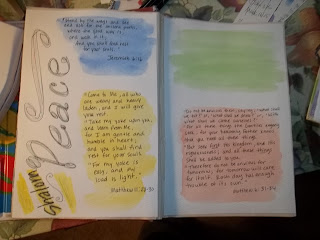 "Stand by the ways and see
and ask for the ancient paths,
where the good way is,
and walk in it;
And you shall find rest
for your souls."
Jeremiah 6:16
Peace
Shalom
"Come to Me, all who
are weary and heavy
laden, and I will give
you rest.
"Take My yoke upon you,
and learn from Me,
for I am gentle and
humble in heart;
and you shall find
rest for your souls.
"For My yoke is
easy, and My
load is light."
Matthew 11:28-30
"Do not be anxious then, saying, 'What shall
we eat?' or, 'What shall we drink?' or, 'With
what shall we clothe ourselves?'
"For all these things the Gentiles eagerly
seek; for your heavenly Father knows
that you need all these things.
"But seek first His kingdom, and His
righteousness; and all these things
shall be added to you.
"Therefore do not be anxious for
tomorrow; for tomorrow will care
for itself. Each day has enough
trouble of its own."
Matthew 6:31-34